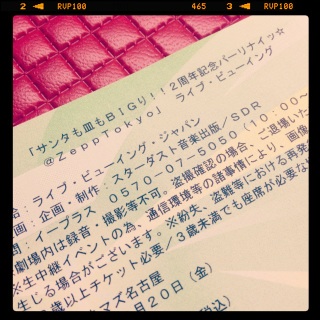 2 RVP100 465 3 RVP100
「サンタも皿もBIGり!!2周年記念パーリナイッ☆
@ZeppTokyo」 ライブ・ビューイング
ライブ・ビューイング・ジャパン
企画・制作:スターダスト音楽出版/SDR
イープラス 0570-07-5050(10:00～
劇場内は録音・撮影等不可。盗撮確認の場合、ご退場いた
※生中継イベントの為、通信環境等の諸事情により、画像
生じる場合がございます。※紛失、盗難等における再発
歳以上チケット必要/3歳未満でも座席が必要な
マズ名古屋
月20日(金)
税込)